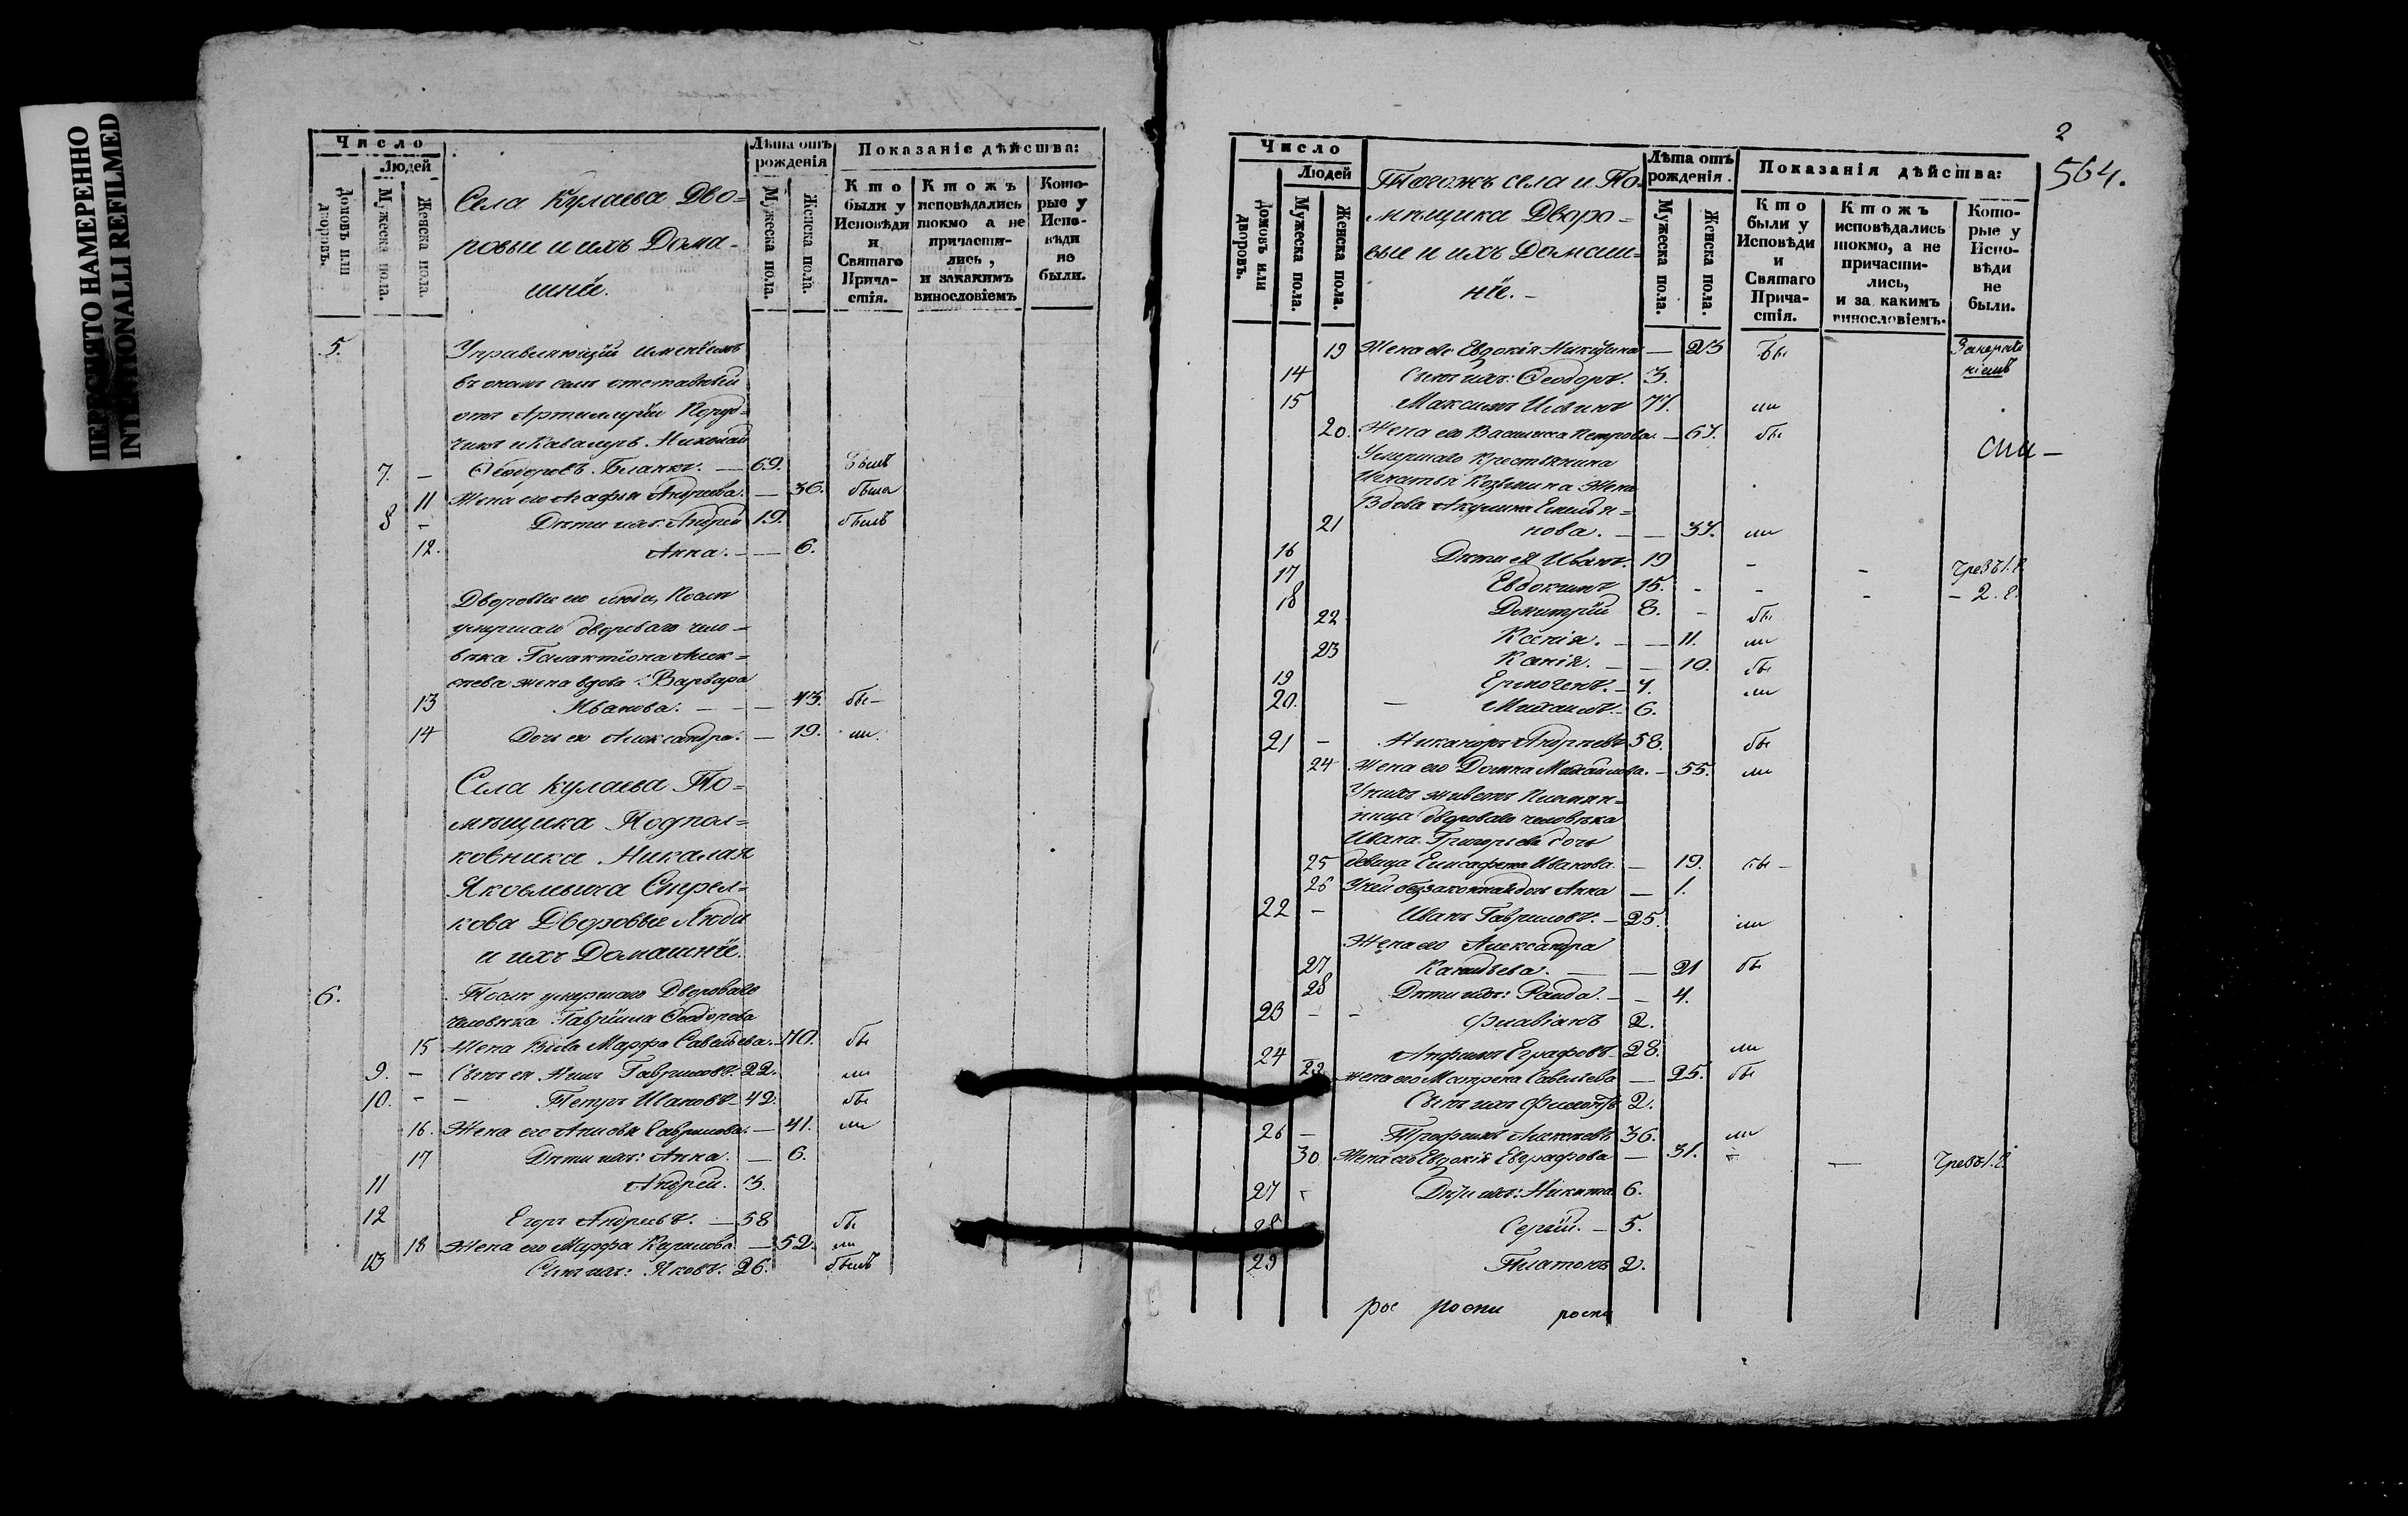 ПЕРЕСНЯТО НАМЕРЕННО
INTENTIONALLI REFILMED
Число
Людей
Домовъ или дворовъ.
Мужеска пола.
Женска пола.
Села Кулаева Дво-
ровые и ихъ Дома-
шніе.
Лѣта отъ рожденія
Мужеска пола.
Женска пола.
Показаніе дѣйства:
Кто были у Исповѣди и Святаго Прича-стія.
Ктожъ исповѣдались токмо а не причасти-лись, и закакимъ винословіемъ
Кото-рые у Испо-вѣди не были.
5. Управляющій имѣніемъ
въ ономъ селѣ отставной
отъ Артиллеріи Поруд-
чикъ и Кавалеръ Николай
7. – Ѳеодоровъ Бланкъ. — 69. былъ
11 Жена его Агафья Андреева. — 36. была
8 – Дѣти ихъ: Андрей 19. былъ
12. Анна. — 6.
Дворовые его люди, Послѣ
умершаго двороваго чело-
вѣка Галактіона Алек-
сѣева жена вдова Варвара
13 Иванова. — 43. бы-
14 Дочь ея Александра. — 19. ли.
Села Кулаева По-
мѣщика Подпол-
ковника Николая
Яковлевича Стрел-
кова Дворовые Люди
и ихъ Домашніе.
6. Послѣ умершаго Двороваго
человѣка Гавріила Ѳеодорова
15 Жена Вдова Марфа Савельева. 70. бы
9. – Сынъ ея Гавриловъ. 22. ли
10. – – Петръ Ивановъ 42. бы
16. Жена его Гаврилова. — 41. ли
17 Дѣти ихъ: Анна. — 6.
11 Андрей. 3.
12 Егоръ Андреевъ. — 58 бы
18 Жена его Марфа Кирилова — 52. ли
13 Сынъ ихъ: Яковъ. 26. былъ
2
564.
Число
Людей
Домовъ или дворовъ.
Мужеска пола.
Женска пола.
Тогожъ села и По-
мѣщика Дворо-
вые и ихъ Домаш-
ніе. –
Лѣта отъ рожденія.
Мужеска пола.
Женска пола.
Показанія дѣйства:
Кто были у Исповѣди и Святаго Прича-стія.
Ктожъ исповѣдались токмо, а не причасти-лись, и за какимъ винословіемъ.
Кото-рые у Испо-вѣди не были.
19 Жена его Евдокія Никитина — 23 Бы
14 Сынъ ихъ: Ѳеодоръ. 3.
15 Максимъ 77. ли
20. Жена его Василиса Петрова. — 67. бы
Умершаго Крестьянина
Игнатья Козьмина Жена
Вдова Акулина Емелья-
21 нова. — 37. ли
16 Дѣти ея Иванъ. 19 – – Чрезъ 1. г.
17 Евдокимъ 15. – – – – 2. г.
18 Димитрій 8. – бы
22 Ксенія. — 11. ли
23 — 10. бы
19 7. ли
20. – Михаилъ. 6.
21 – Никаноръ Андреевъ 58. бы
24 Жена его Домна Михайлова. – 55. ли
У нихъ живетъ Племян-
ница двороваго человѣка
Ивана Григорьева дочь
25 девица Елисафета Иванова. — 19. бы –
26 У ней беззаконная дочь Анна — 1.
22 – Иванъ Гавриловъ. – 25. ли
Жена его Александра
27 — 21 бы
28 Дѣти ихъ: Раида. – – 4.
23 – – Флавіанъ 2.
24 – Анфимъ Еграфовъ 28. ли
29 жена его Матрена Савельева — 25. бы
Сынъ ихъ 2.
26 – Трофимъ 36. ли
30 Жена его Евдокія Евграфова — 31. – — Чрезъ 1. г.
27 – Дѣти ихъ: Никита 6.
28 Сергій. – 5.
29 Платонъ 2.
рос росписи